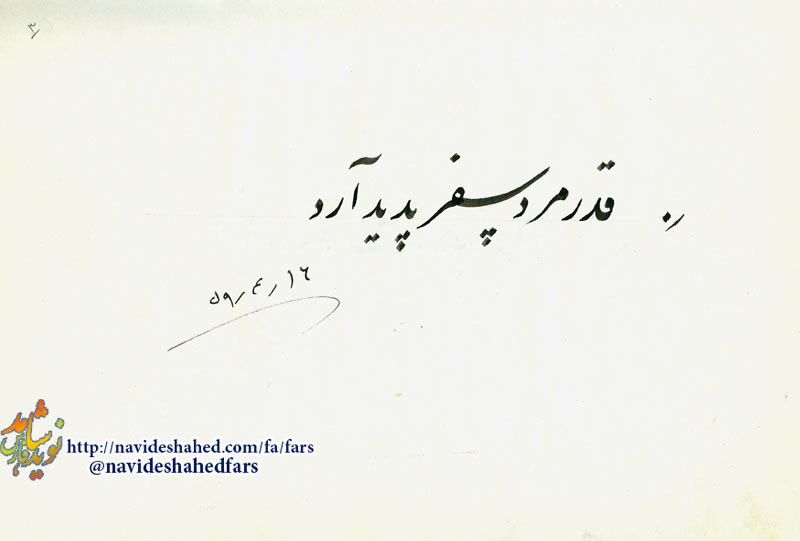 ۳
قدر مرد سفر پدید آرد
۵۹٫۴٫۱۶
نوید شاهد فارس
http://navideshahed.com/fa/fars
@navideshahedfars